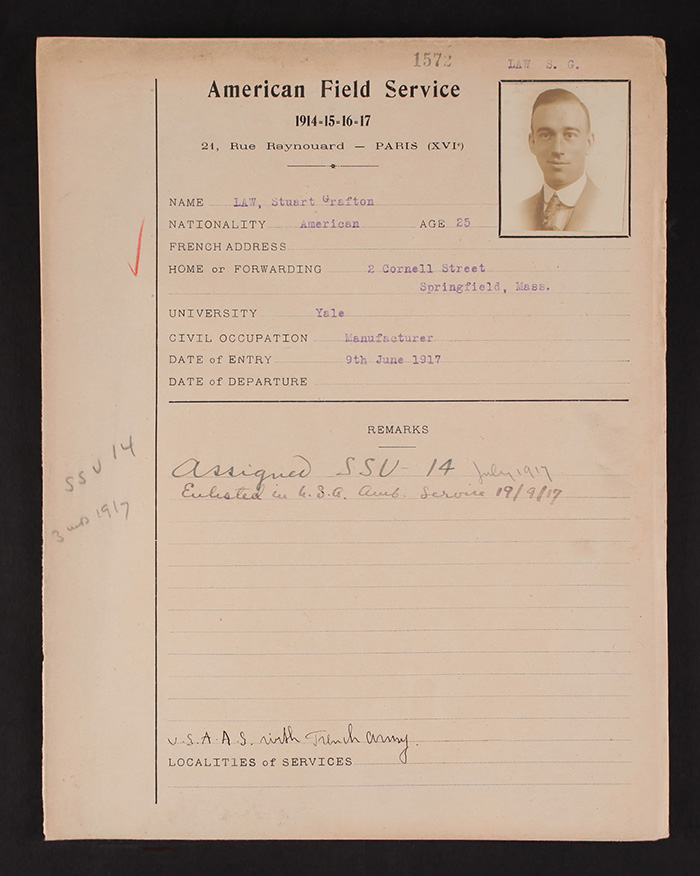 1572
LAW S. G.
American Field Service
1914-15-16-17
21, Rue Raynouard — PARIS (XVIe)
NAME LAW, Stuart Grafton
NATIONALITY American AGE 25
FRENCH ADDRESS
HOME or FORWARDING 2 Cornell Street
Springfield, Mass.
UNIVERSITY Yale
CIVIL OCCUPATION Manufacturer
DATE of ENTRY 9th June 1917
DATE of DEPARTURE
REMARKS
Assigned SSU - 14 July 1917
Enlisted in U.S.A. Amb. Service 19/9/17
SSU 14
3 mos 1917
U.S.A.A.S. with French Army.
LOCALITIES of SERVICES